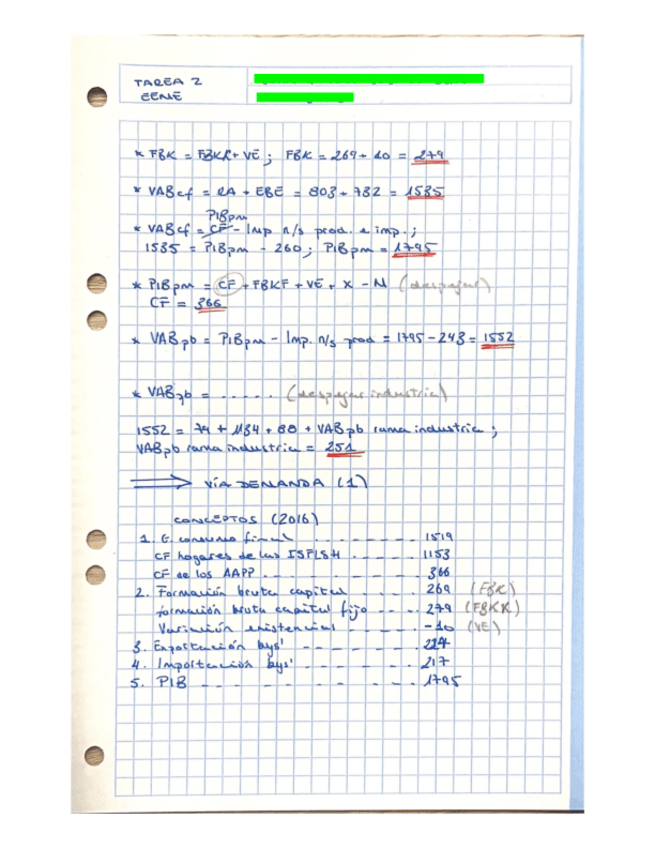 TAREA 2
EENE
* FBK = FBKF + VE ; FBK = 269 + 10 = 279
* VABcf = RA + EBE = 803 + 732 = 1535
PIBpm
* VABcf = CF - Imp n/s prod. e imp. ;
1535 = PIBpm - 260 ; PIBpm = 1795
* PIBpm = CF + FBKF + VE + X - M (despejar)
CF = 366
* VABpb = PIBpm - Imp. n/s prod = 1795 - 243 = 1552
* VABpb = ..... (despejar industria)
1552 = 79 + 1134 + 88 + VABpb rama industria ;
VABpb rama industria = 251
VÍA DEMANDA (1)
CONCEPTOS (2016)
1. G. consumo final 1519
CF hogares de las ISFLSH 1153
CF de los AAPP 366
2. Formación bruta capital 269 (FBK)
formación bruta capital fijo 279 (FBKF)
Variación existencial -10 (VE)
3. Exportación bys' 224
4. Importación bys' 217
5. PIB 1795